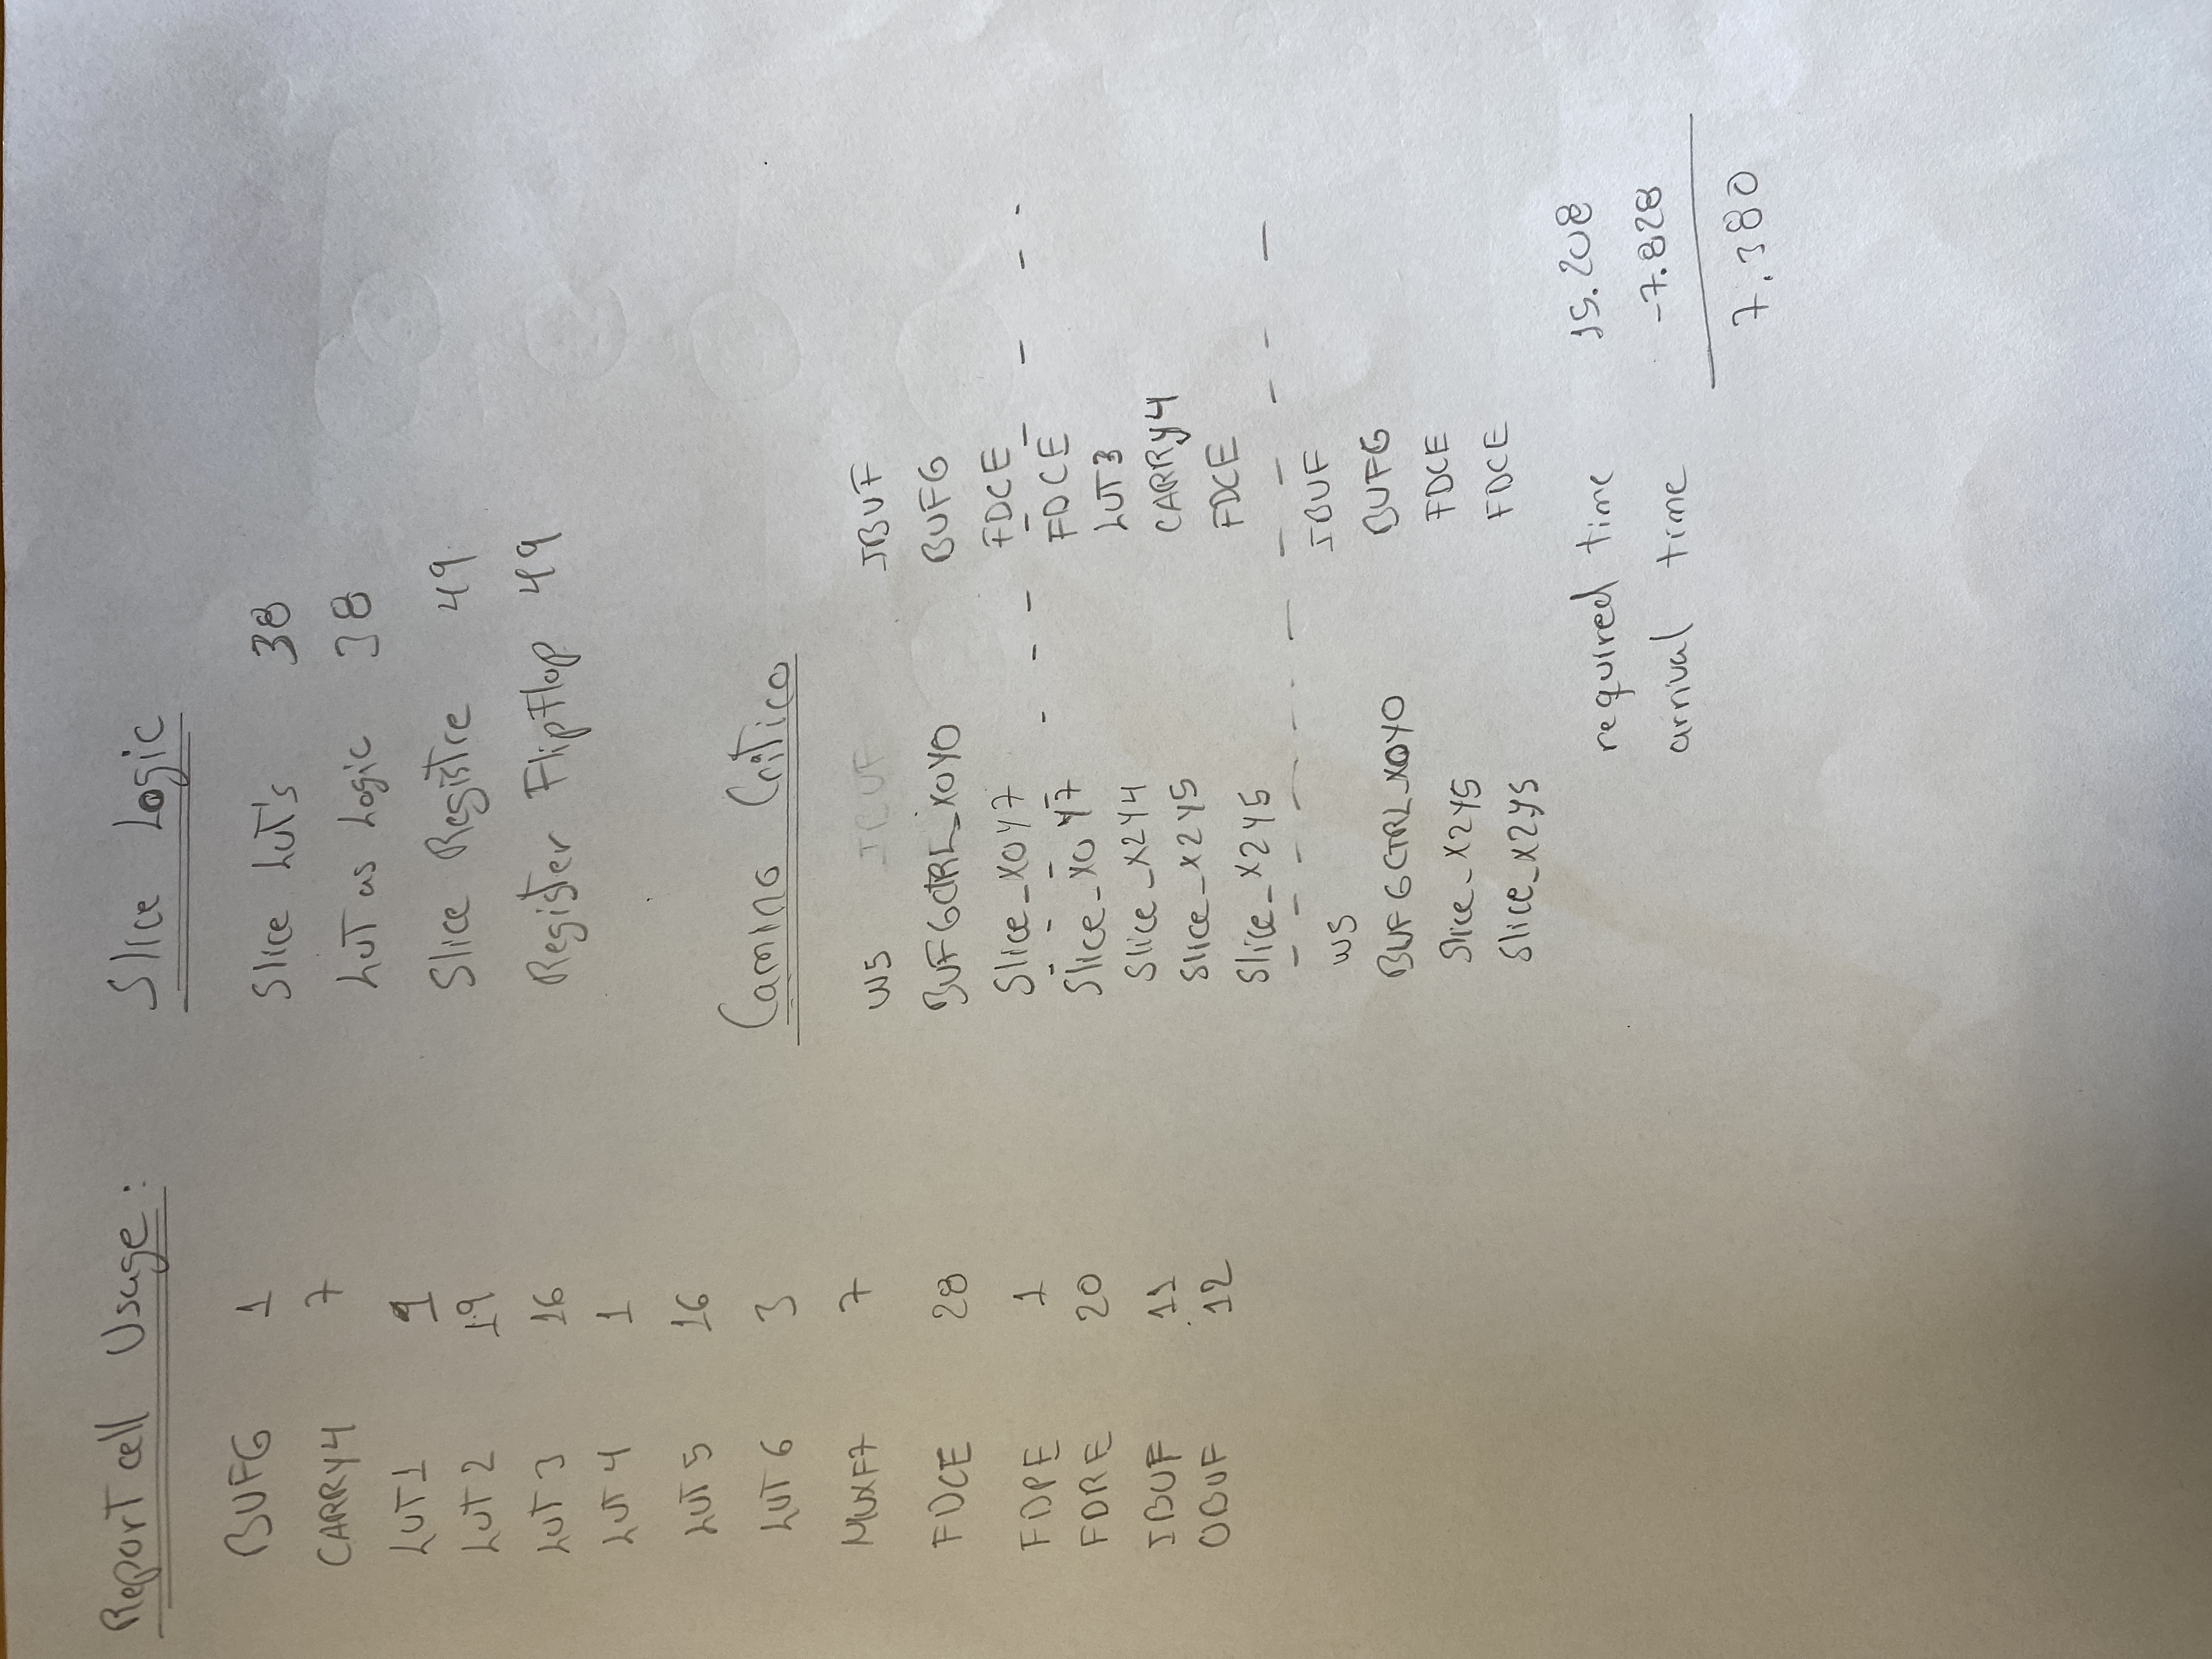 Report cell Usage:
BUFG 1
CARRY4 7
LUT1
LUT2 19
LUT3 16
LUT4 1
LUT5 16
LUT6 3
MUXF7 7
FDCE 28
FDPE 1
FDRE 20
IBUF 11
OBUF 12
Slice Logic
Slice LUT's 38
LUT as Logic 38
Slice Registre 49
Register FlipFlop 49
Camino Critico
W5 IBUF IBUF
BUFGCTRL_X0Y0 BUFG
Slice_X0Y7 FDCE
Slice_X0Y7 FDCE
Slice_X2Y4 LUT3
Slice_X2Y5 CARRY4
Slice_X2Y5 FDCE
W5 IBUF
BUFGCTRL_X0Y0 BUFG
Slice_X2Y5 FDCE
Slice_X2Y5 FDCE
required time 15.208
arrival time -7.828
7.380